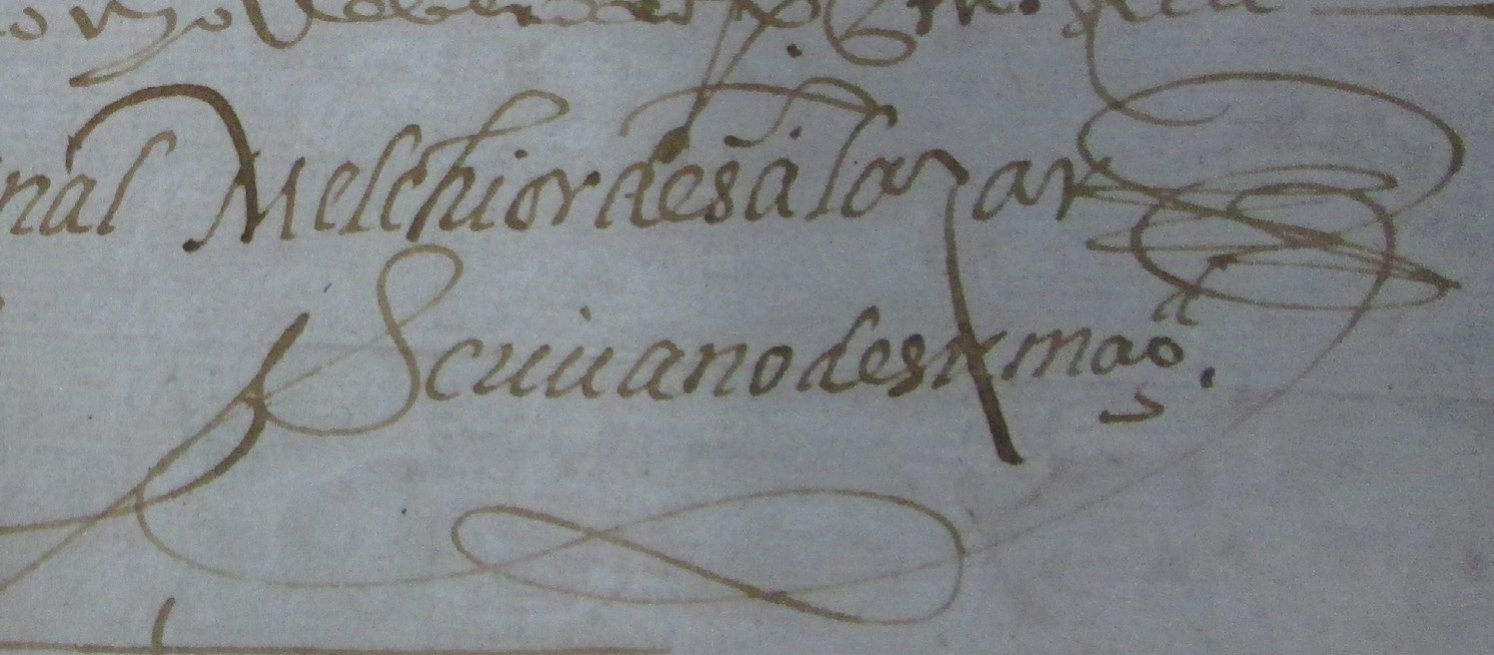 nal Melchior de sálazar
Scriuano de su magd.